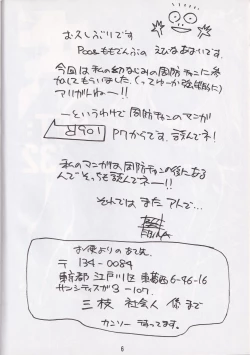 おひさしぶりです
Pooももでんぶの えびなあきらです。
今回は私の幼なじみの周防チャンに参
加してもらいました。(ってゆーか強制的に)
アリガトねー!!
―というわけで 周防チャンのマンガ
P7からです。読んでネ!
私のマンガは周防チャンの後にある
んで そっちも読んでネー!!
それでは また アトで…
お便りのあて先
〒134-0084
東京都 江戸川区 東葛西 6-46-16
3-107
三枝 社会人 係まで
カンソー まってます。
6